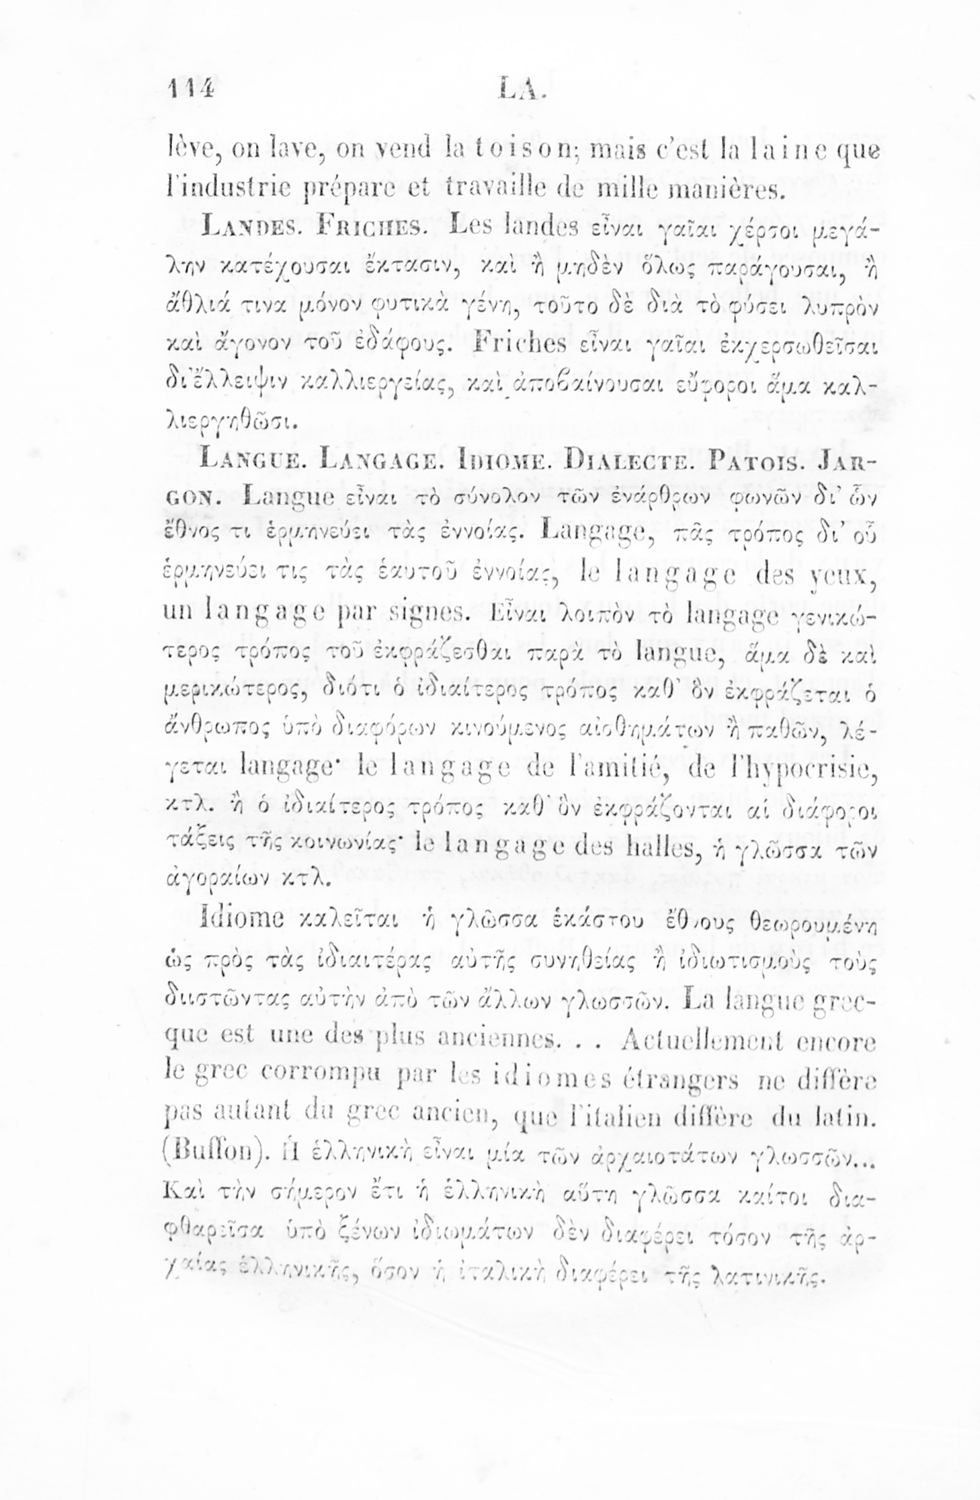 114 LA.
lève, on lave, on vend la toison; mais c'est la laine que
l'industrie prépare et travaille de mille manières.
LANDES. FRICHES. Les landes εἶναι γαῖαι χέρσοι μεγά-
λην κατέχουσαι ἔκτασιν, καὶ ἢ μηδὲν ὅλως παράγουσαι, ἢ
ἄθλιά τινα μόνον φυτικὰ γένη, τοῦτο δὲ διὰ τὸ φύσει λυπρὸν
καὶ ἄγονον τοῦ ἐδάφους. Friches εἶναι γαῖαι ἐκχερσωθεῖσαι
δι' ἔλλειψιν καλλιεργείας, καὶ ἀποβαίνουσαι εὔφοροι ἅμα καλ-
λιεργηθῶσι.
LANGUE. LANGAGE. IDIOME. DIALECTE. PATOIS. JAR-
GON. Langue εἶναι τὸ σύνολον τῶν ἐνάρθρων φωνῶν δι' ὧν
ἔθνος τι ἑρμηνεύει τὰς ἐννοίας. Langage, πᾶς τρόπος δι' οὗ
ἑρμηνεύει τις τὰς ἑαυτοῦ ἐννοίας, le langage des yeux,
un langage par signes. Εἶναι λοιπὸν τὸ langage γενικώ-
τερος τρόπος τοῦ ἐκφράζεσθαι παρὰ τὸ langue, ἅμα δὲ καὶ
μερικώτερος, διότι ὁ ἰδιαίτερος τρόπος καθ' ὃν ἐκφράζεται ὁ
ἄνθρωπος ὑπὸ διαφόρων κινούμενος αἰσθημάτων ἢ παθῶν, λέ-
γεται langage· le langage de l'amitié, de l'hypocrisie,
κτλ. ἢ ὁ ἰδιαίτερος τρόπος καθ' ὃν ἐκφράζονται αἱ διάφοροι
τάξεις τῆς κοινωνίας· le langage des halles, ἡ γλῶσσα τῶν
ἀγοραίων κτλ.
Idiome καλεῖται ἡ γλῶσσα ἑκάστου ἔθνους θεωρουμένη
ὡς πρὸς τὰς ἰδιαιτέρας αὐτῆς συνηθείας ἢ ἰδιωτισμοὺς τοὺς
διιστῶντας αὐτὴν ἀπὸ τῶν ἄλλων γλωσσῶν. La langue grec-
que est une des plus anciennes. . . Actuellement encore
le grec corrompu par les idiomes étrangers ne diffère
pas autant du grec ancien, que l'italien diffère du latin.
(Buffon). Ἡ ἑλληνικὴ εἶναι μία τῶν ἀρχαιοτάτων γλωσσῶν...
Καὶ τὴν σήμερον ἔτι ἡ ἑλληνικὴ αὕτη γλῶσσα καίτοι δια-
φθαρεῖσα ὑπὸ ξένων ἰδιωμάτων δὲν διαφέρει τόσον τῆς ἀρ-
χαίας ἑλληνικῆς, ὅσον ἡ ἰταλικὴ διαφέρει τῆς λατινικῆς.